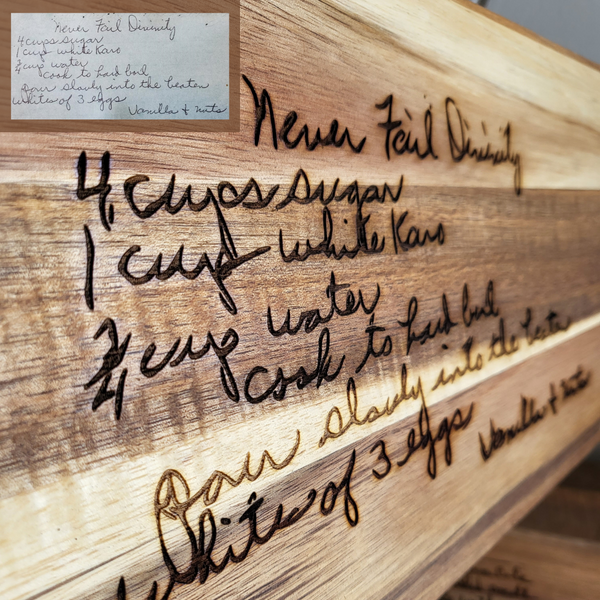 Never Fail Divinity
4 cups sugar
1 cup white Karo
3/4 cup water
cook to hard boil
pour slowly into the beaten
whites of 3 eggs
Vanilla & nuts
Never Fail Divinity
4 cups sugar
1 cup white Karo
3/4 cup water
cook to hard boil
pour slowly into the beaten
whites of 3 eggs
Vanilla & nuts